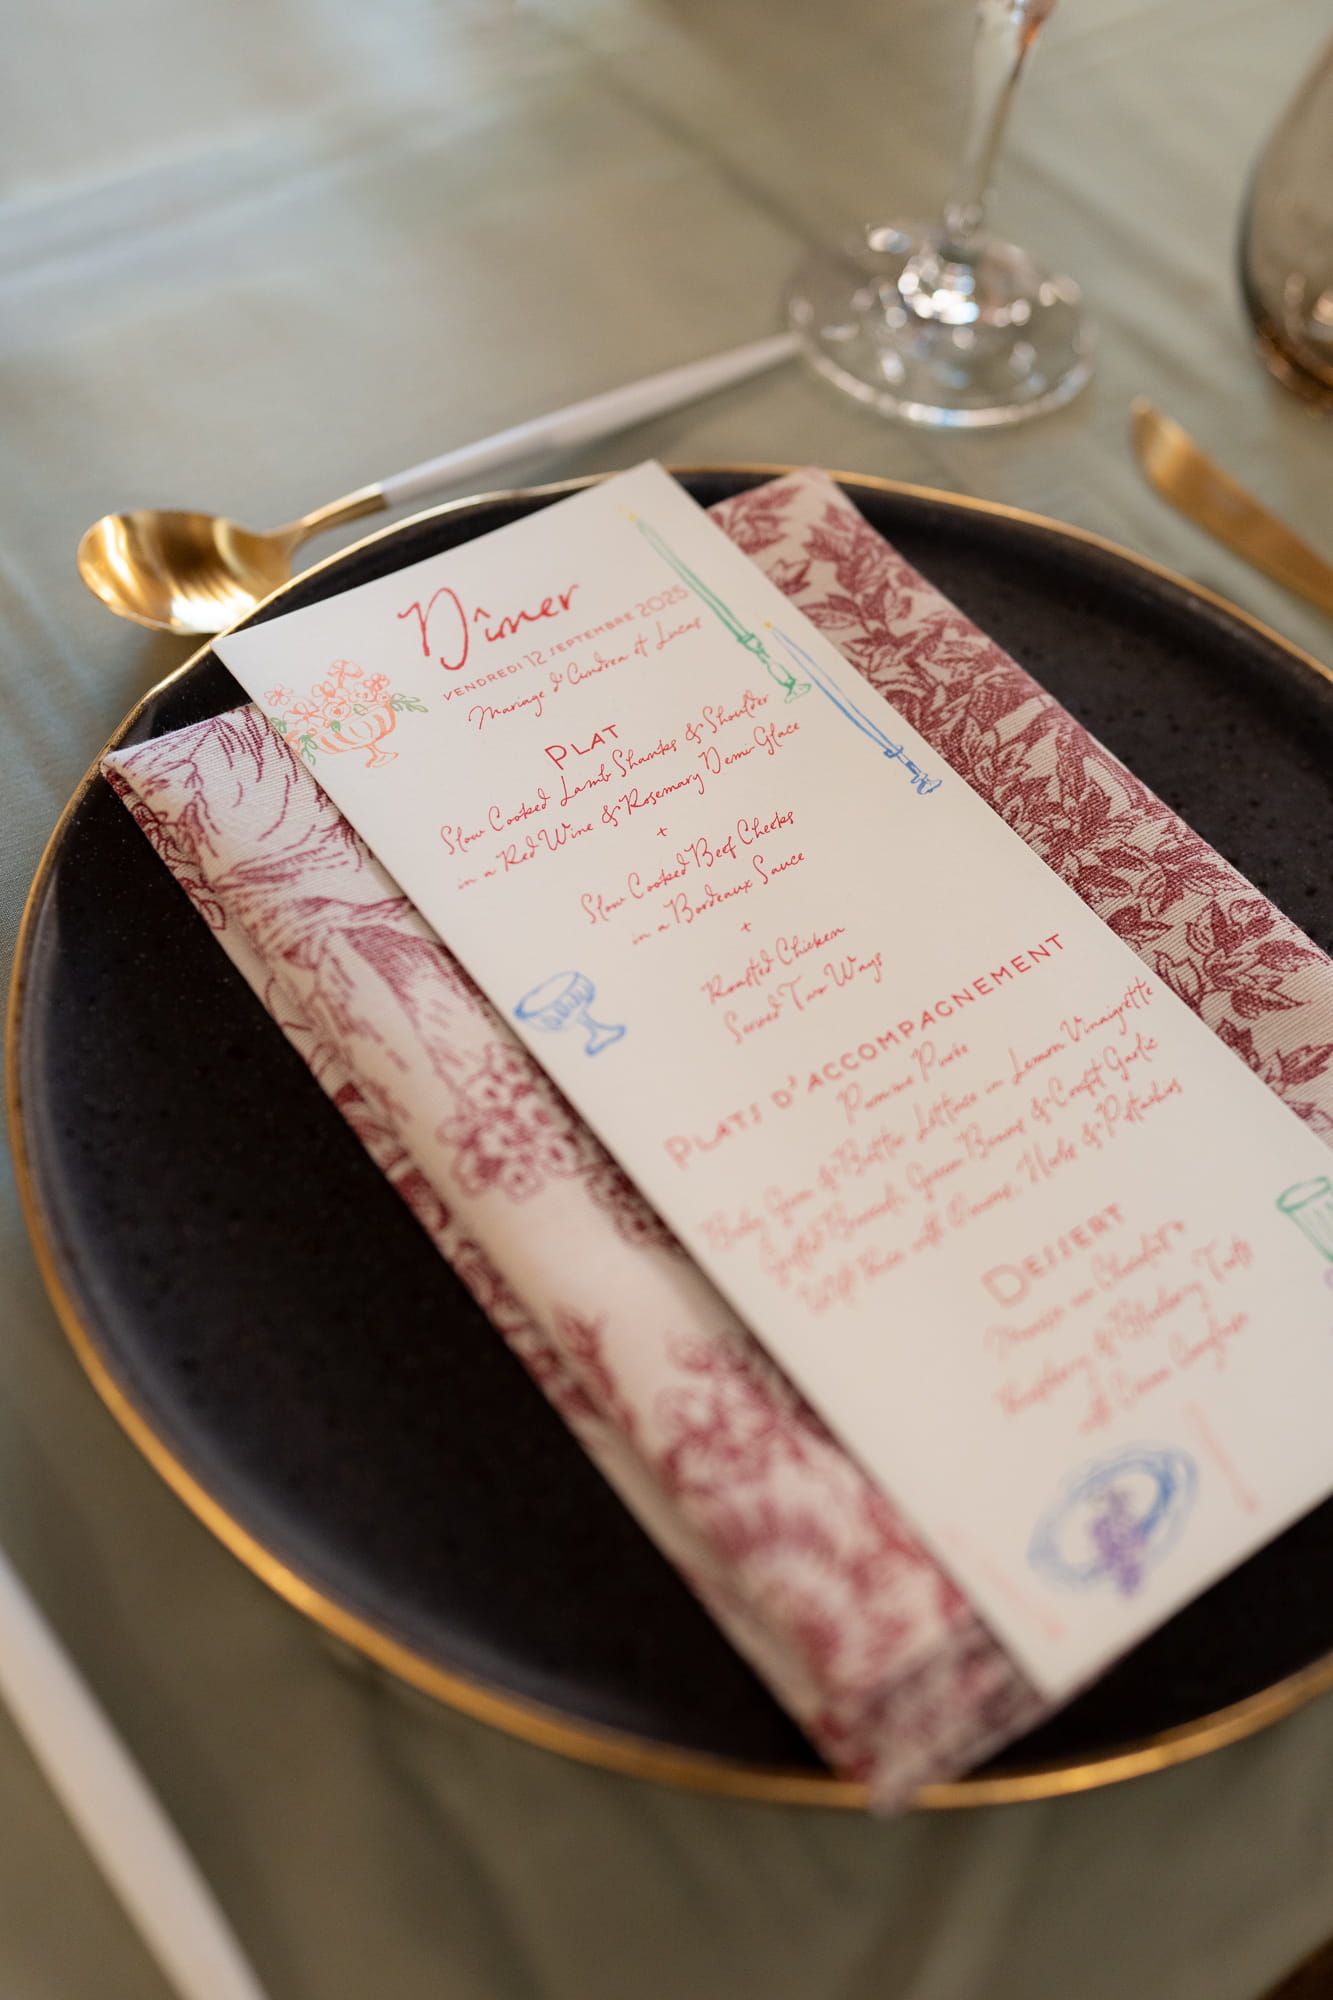 Dîner
VENDREDI 12 SEPTEMBRE 2025
Mariage d'Andrea et Lucas
PLAT
Slow Cooked Lamb Shanks & Shoulder
in a Red Wine & Rosemary Demi-Glace
+
Slow Cooked Beef Cheeks
in a Bordeaux Sauce
+
Roasted Chicken
Served Two Ways
PLATS D'ACCOMPAGNEMENT
Pomme Purée
Baby Gem & Butter Lettuce in Lemon Vinaigrette
Green Beans & Confit Garlic
Wild Rice with Onions, Herbs & Pistachios
DESSERT
Mousse au Chocolat
Raspberry & Blueberry Tarts